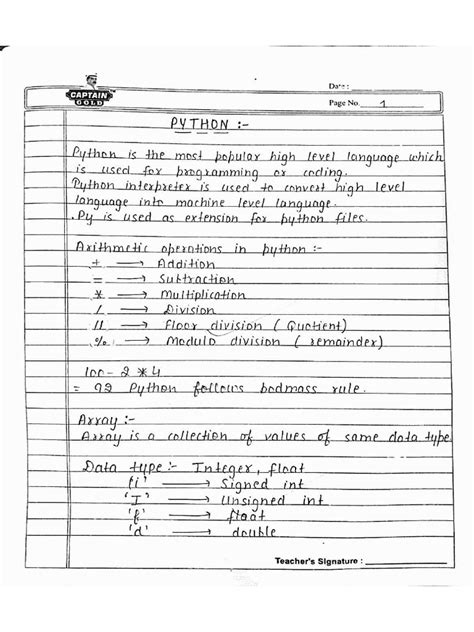 CAPTAIN
GOLD
Date :
Page No. 1
PYTHON :-
Python is the most popular high level language which
is used for programming or coding.
Python interpreter is used to convert high level
language into machine level language.
.Py is used as extension for python files.
Arithmetic operations in python :-
+ → Addition
- → Subtraction
* → Multiplication
/ → Division
// → Floor division ( Quotient)
% → Modulo division ( remainder)
100 - 2 * 4
= 92 Python follows bodmass rule.
Array :-
Array is a collection of values of same data type
Data type :- Integer, float
'i' → Signed int
'I' → Unsigned int
'f' → float
'd' → double
Teacher's Signature :